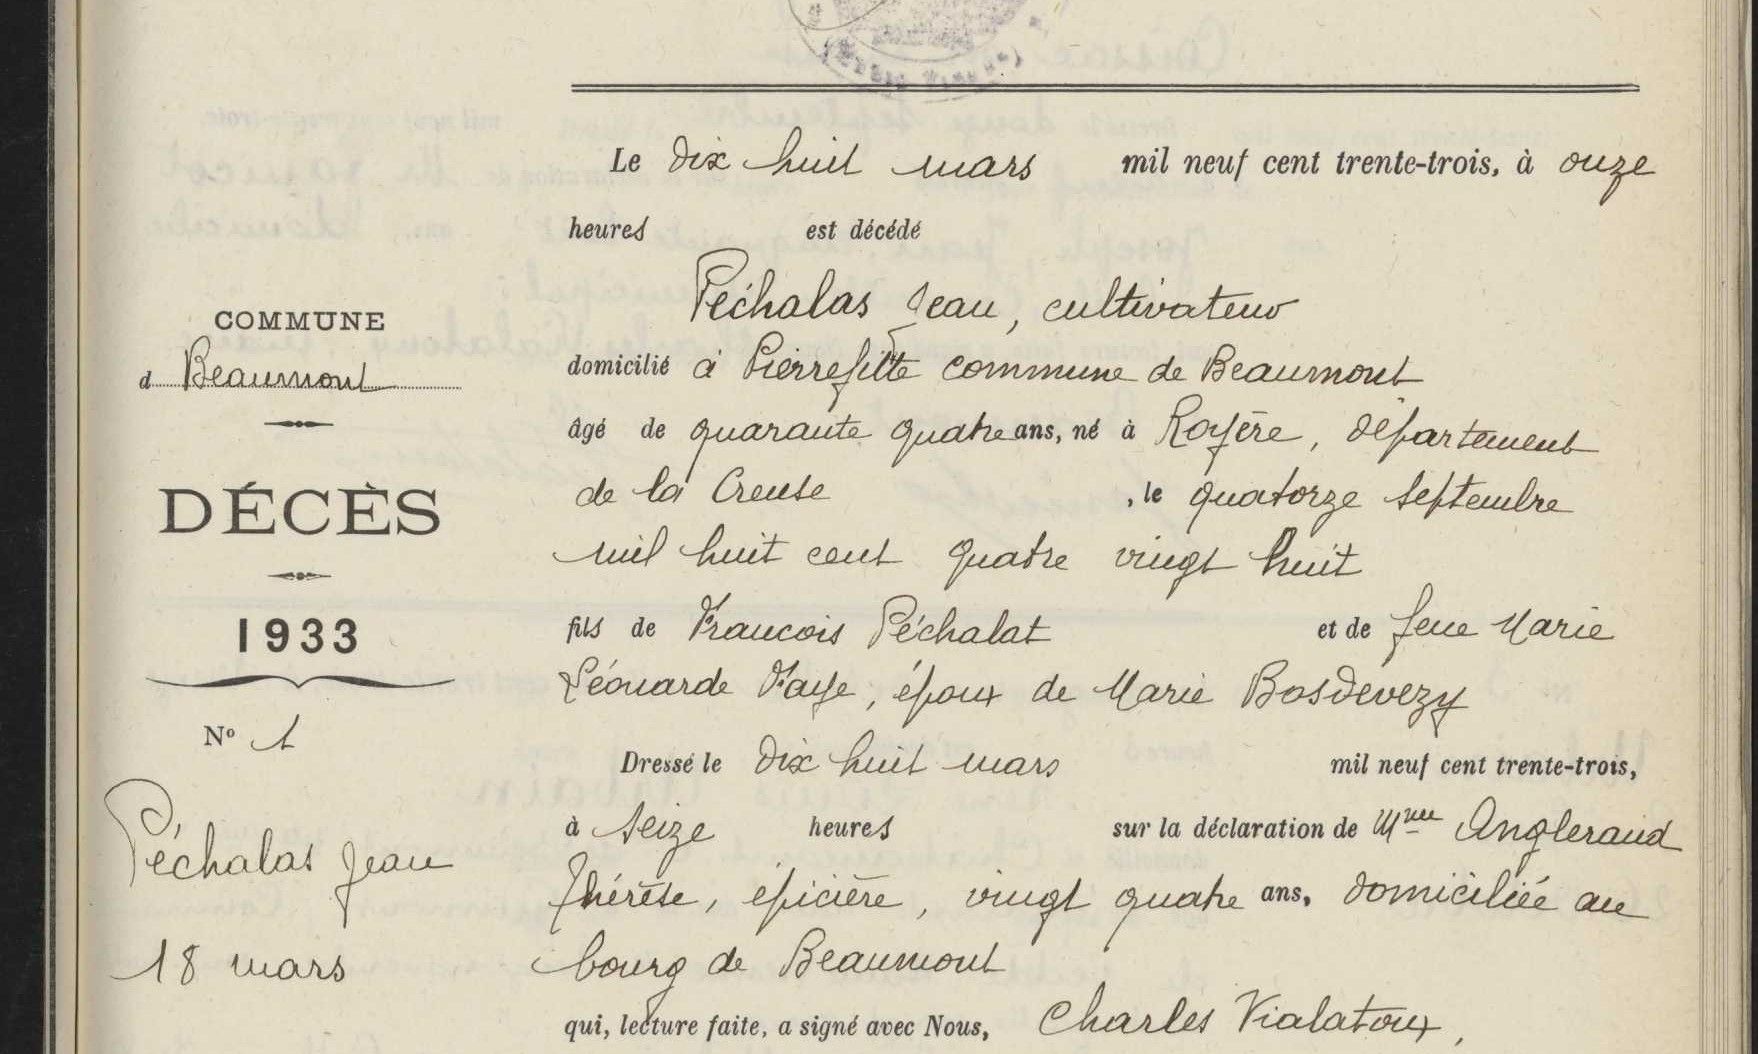 COMMUNE
d Beaumont
DÉCÈS
1933
N° 1
Péchalas Jean
18 mars
Le dix huit mars mil neuf cent trente-trois, à onze
heures est décédé
Péchalas Jean, cultivateur
domicilié à Pierrefitte commune de Beaumont
âgé de quarante quatre ans, né à Royère, département
de la Creuse, le quatorze septembre
mil huit cent quatre vingt huit
fils de Francois Péchalat et de feue Marie
Léonarde Faye, époux de Marie Bosdevezy
Dressé le dix huit mars mil neuf cent trente-trois,
à seize heures sur la déclaration de Mme Angleraud
Thérèse, épicière, vingt quatre ans, domiciliée au
bourg de Beaumont
qui, lecture faite, a signé avec Nous, Charles Vialatoux,